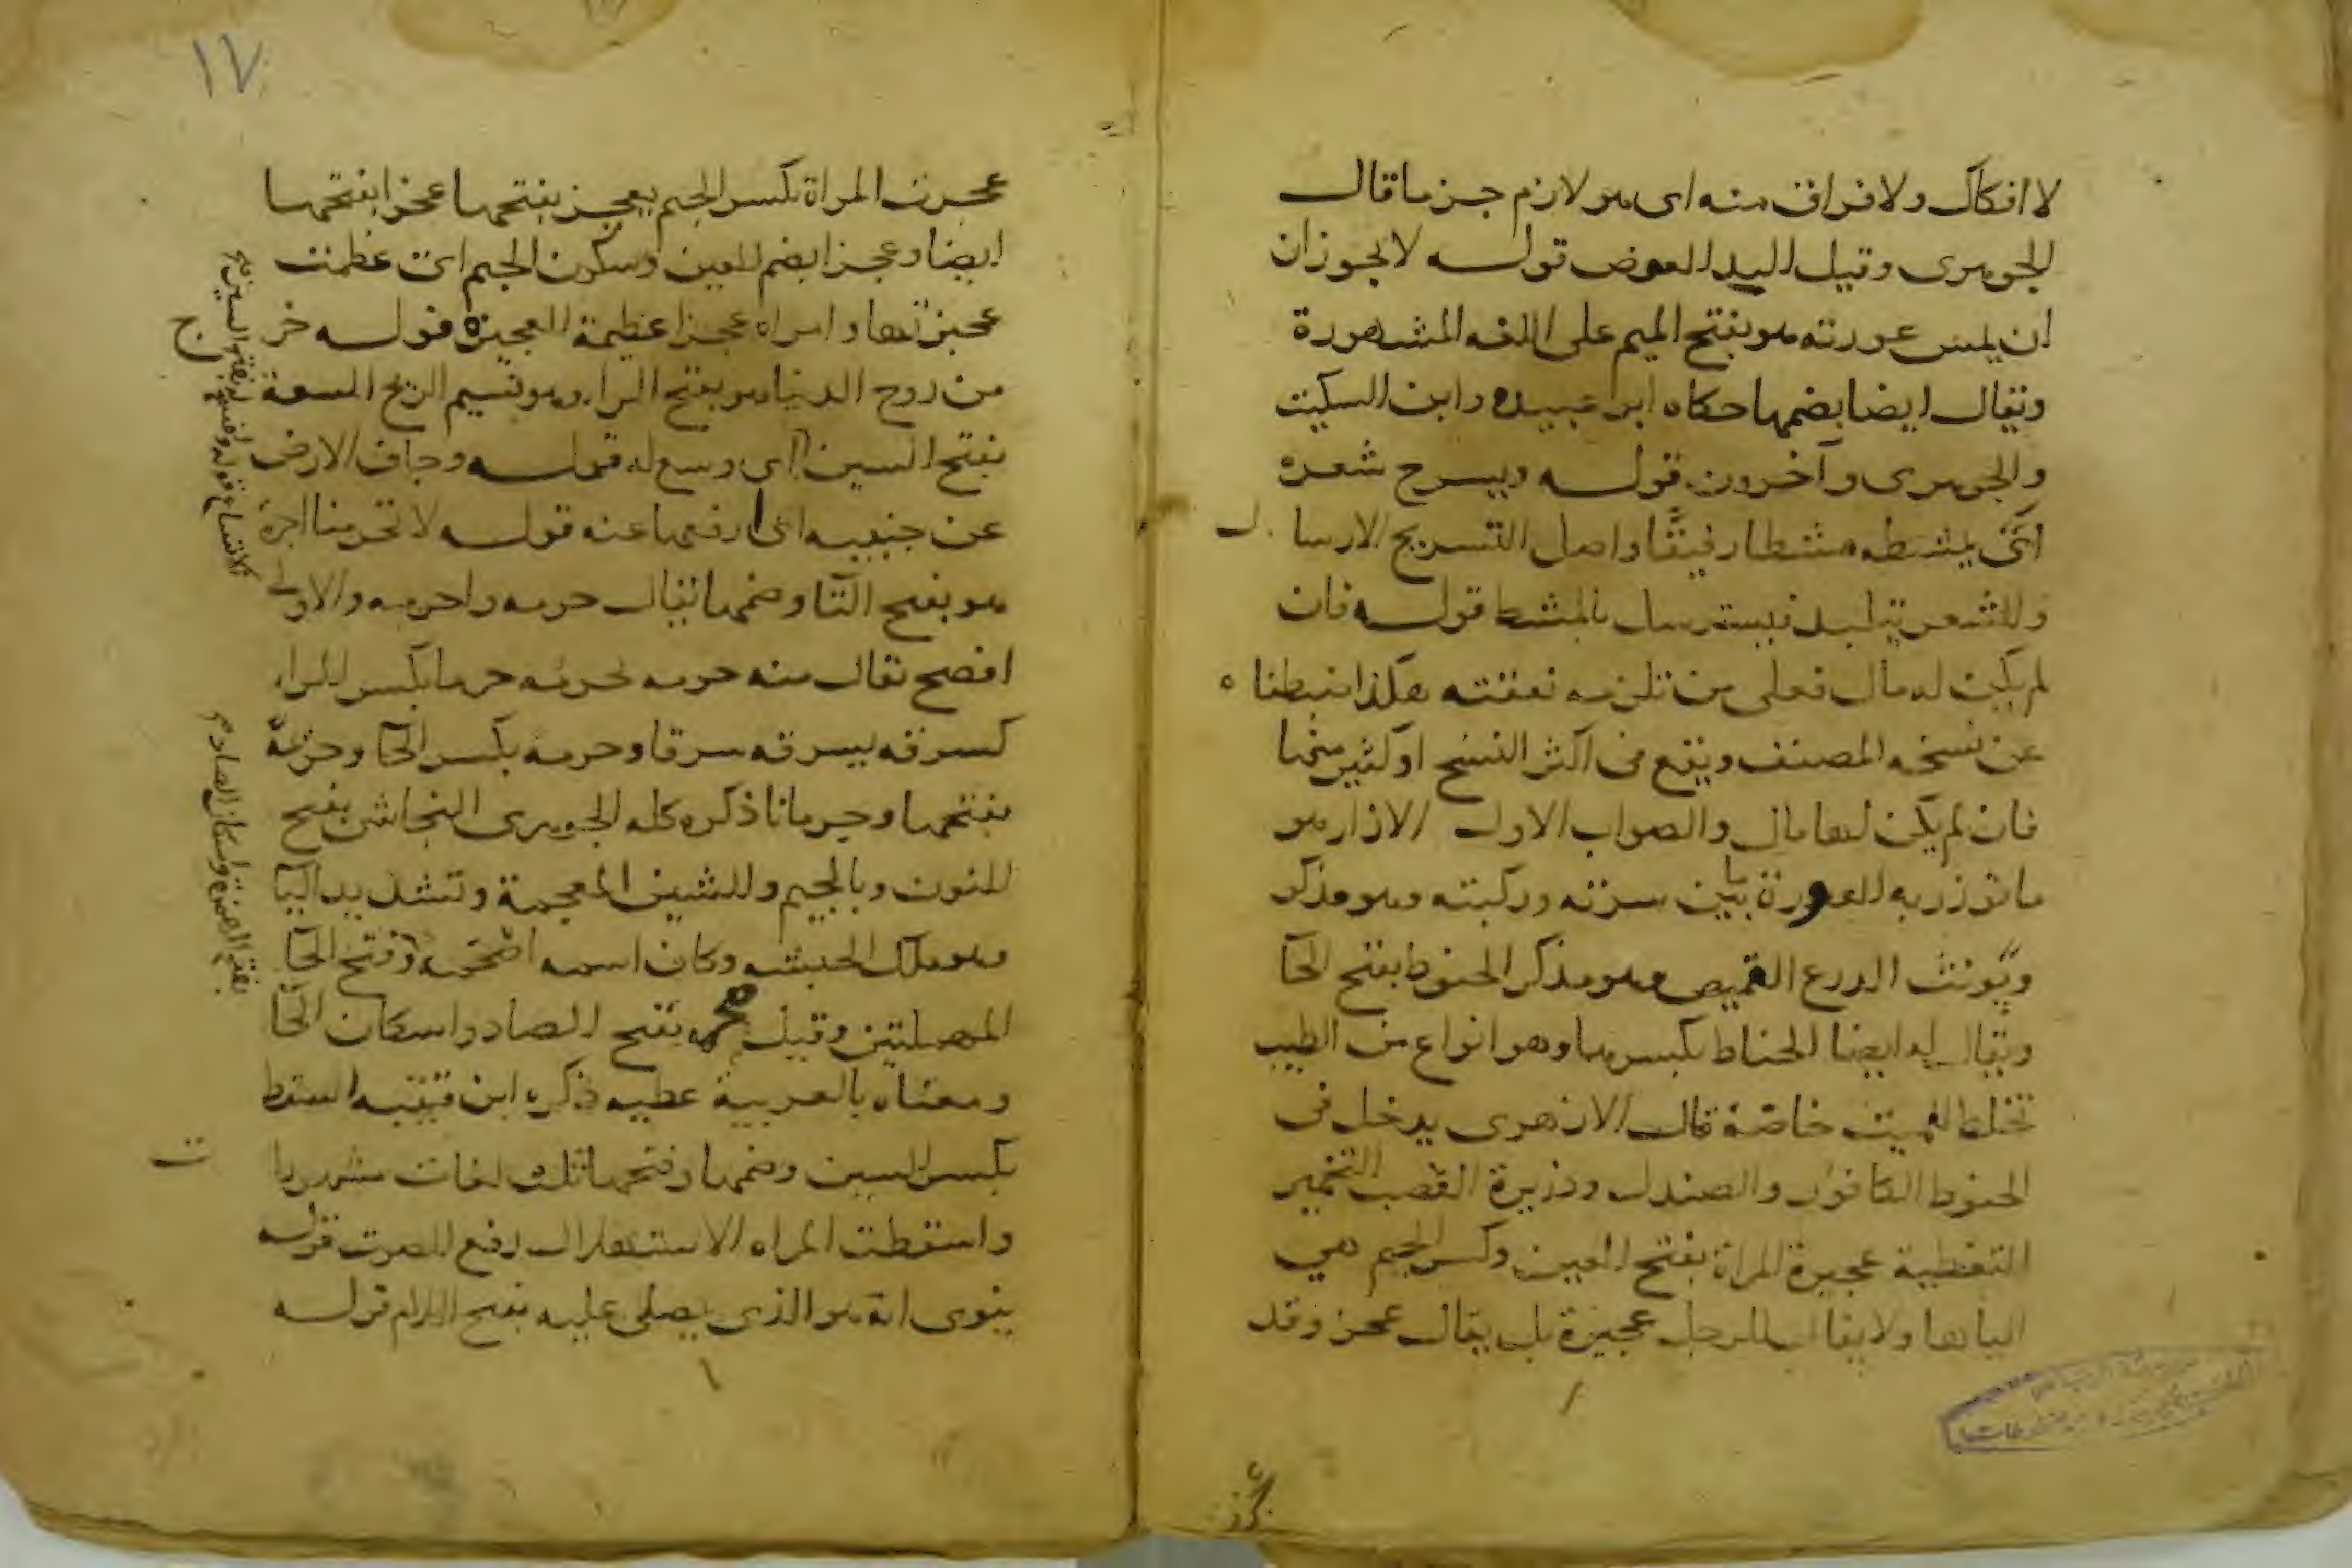 لا افكاك ولا فراق منه اى هو لازم جزما قال
الجوهرى وقيل البد العوض قوله لا يجوز ان
ان يمس عورته هو بفتح الميم على اللغه المشهورة
ويقال ايضا بضمها حكاه ابو عبيده وابن السكيت
والجوهرى وآخرون قوله ويسرح شعره
اى يمشطه مشطا رفيقا واصل التسريح الارسال
والشعر يتلبد فيسترسل بالمشط قوله فان
لم يكن له مال فعلى من تلزمه نفقته هكذا ضبطناه
عن نسخه المصنف ويقع فى اكثر النسخ او كثير منها
فان لم يكن لها مال والصواب الاول الازار هو
ما توزر به العورة ما بين سرته وركبته وهو مذكر
ويونث الدرع القميص وهو مذكر الحنوط بفتح الحآ
ويقال له ايضا الحناط بكسرها وهو انواع من الطيب
تخلط للميت خاصة قال الازهرى يدخل فى
الحنوط الكافور والصندل وذريرة القصب التخمير
التغطية عجيزة المراة بفتح العين وكسر الجيم هي
الياها ولا يقال للرجل عجيزة بل يقال عجز وقد
عجزت المراة بكسر الجيم يعجز بفتحها عجزا بفتحها
ايضا وعجزا بضم العين وسكون الجيم اى عظمت
عجيزتها وامراه عجزا عظيمة العجيزه قوله خرج
من روح الدنيا هو بفتح الراء وهو نسيم الريح السعة
بفتح السين اى وسع له قوله وجاف الارض
عن جنبيه اى ارفعها عنه قوله لا تحرمنا اجره
هو بفتح التآ وضمها يقال حرمه واحرمه والاولى
افصح يقال منه حرمه يحرمه حرما بكسر الراء
كسرقه يسرقه سرقا وحرمه بكسر الحآ وحرمة
بفتحها وحرمانا ذكره كله الجوهرى النجاشى بفتح
النون وبالجيم والشين المعجمة وتشديد اليآ
وهو ملك الحبشه وكان اسمه اصحمه وفتح الحآ
المهملتين وقيل صحمه بفتح الصاد واسكان الحآ
ومعناه بالعربية عطيه ذكره ابن قتيبه السقط
بكسر السين وضمها وفتحها ثلث لغات مشهورات
واسقطت المراه الاستهلال رفع الصوت قوله
ينوى انه هو الذى يصلى عليه بفتح اللام قوله
بفتح الهمزة واسكان الصاد
١٧